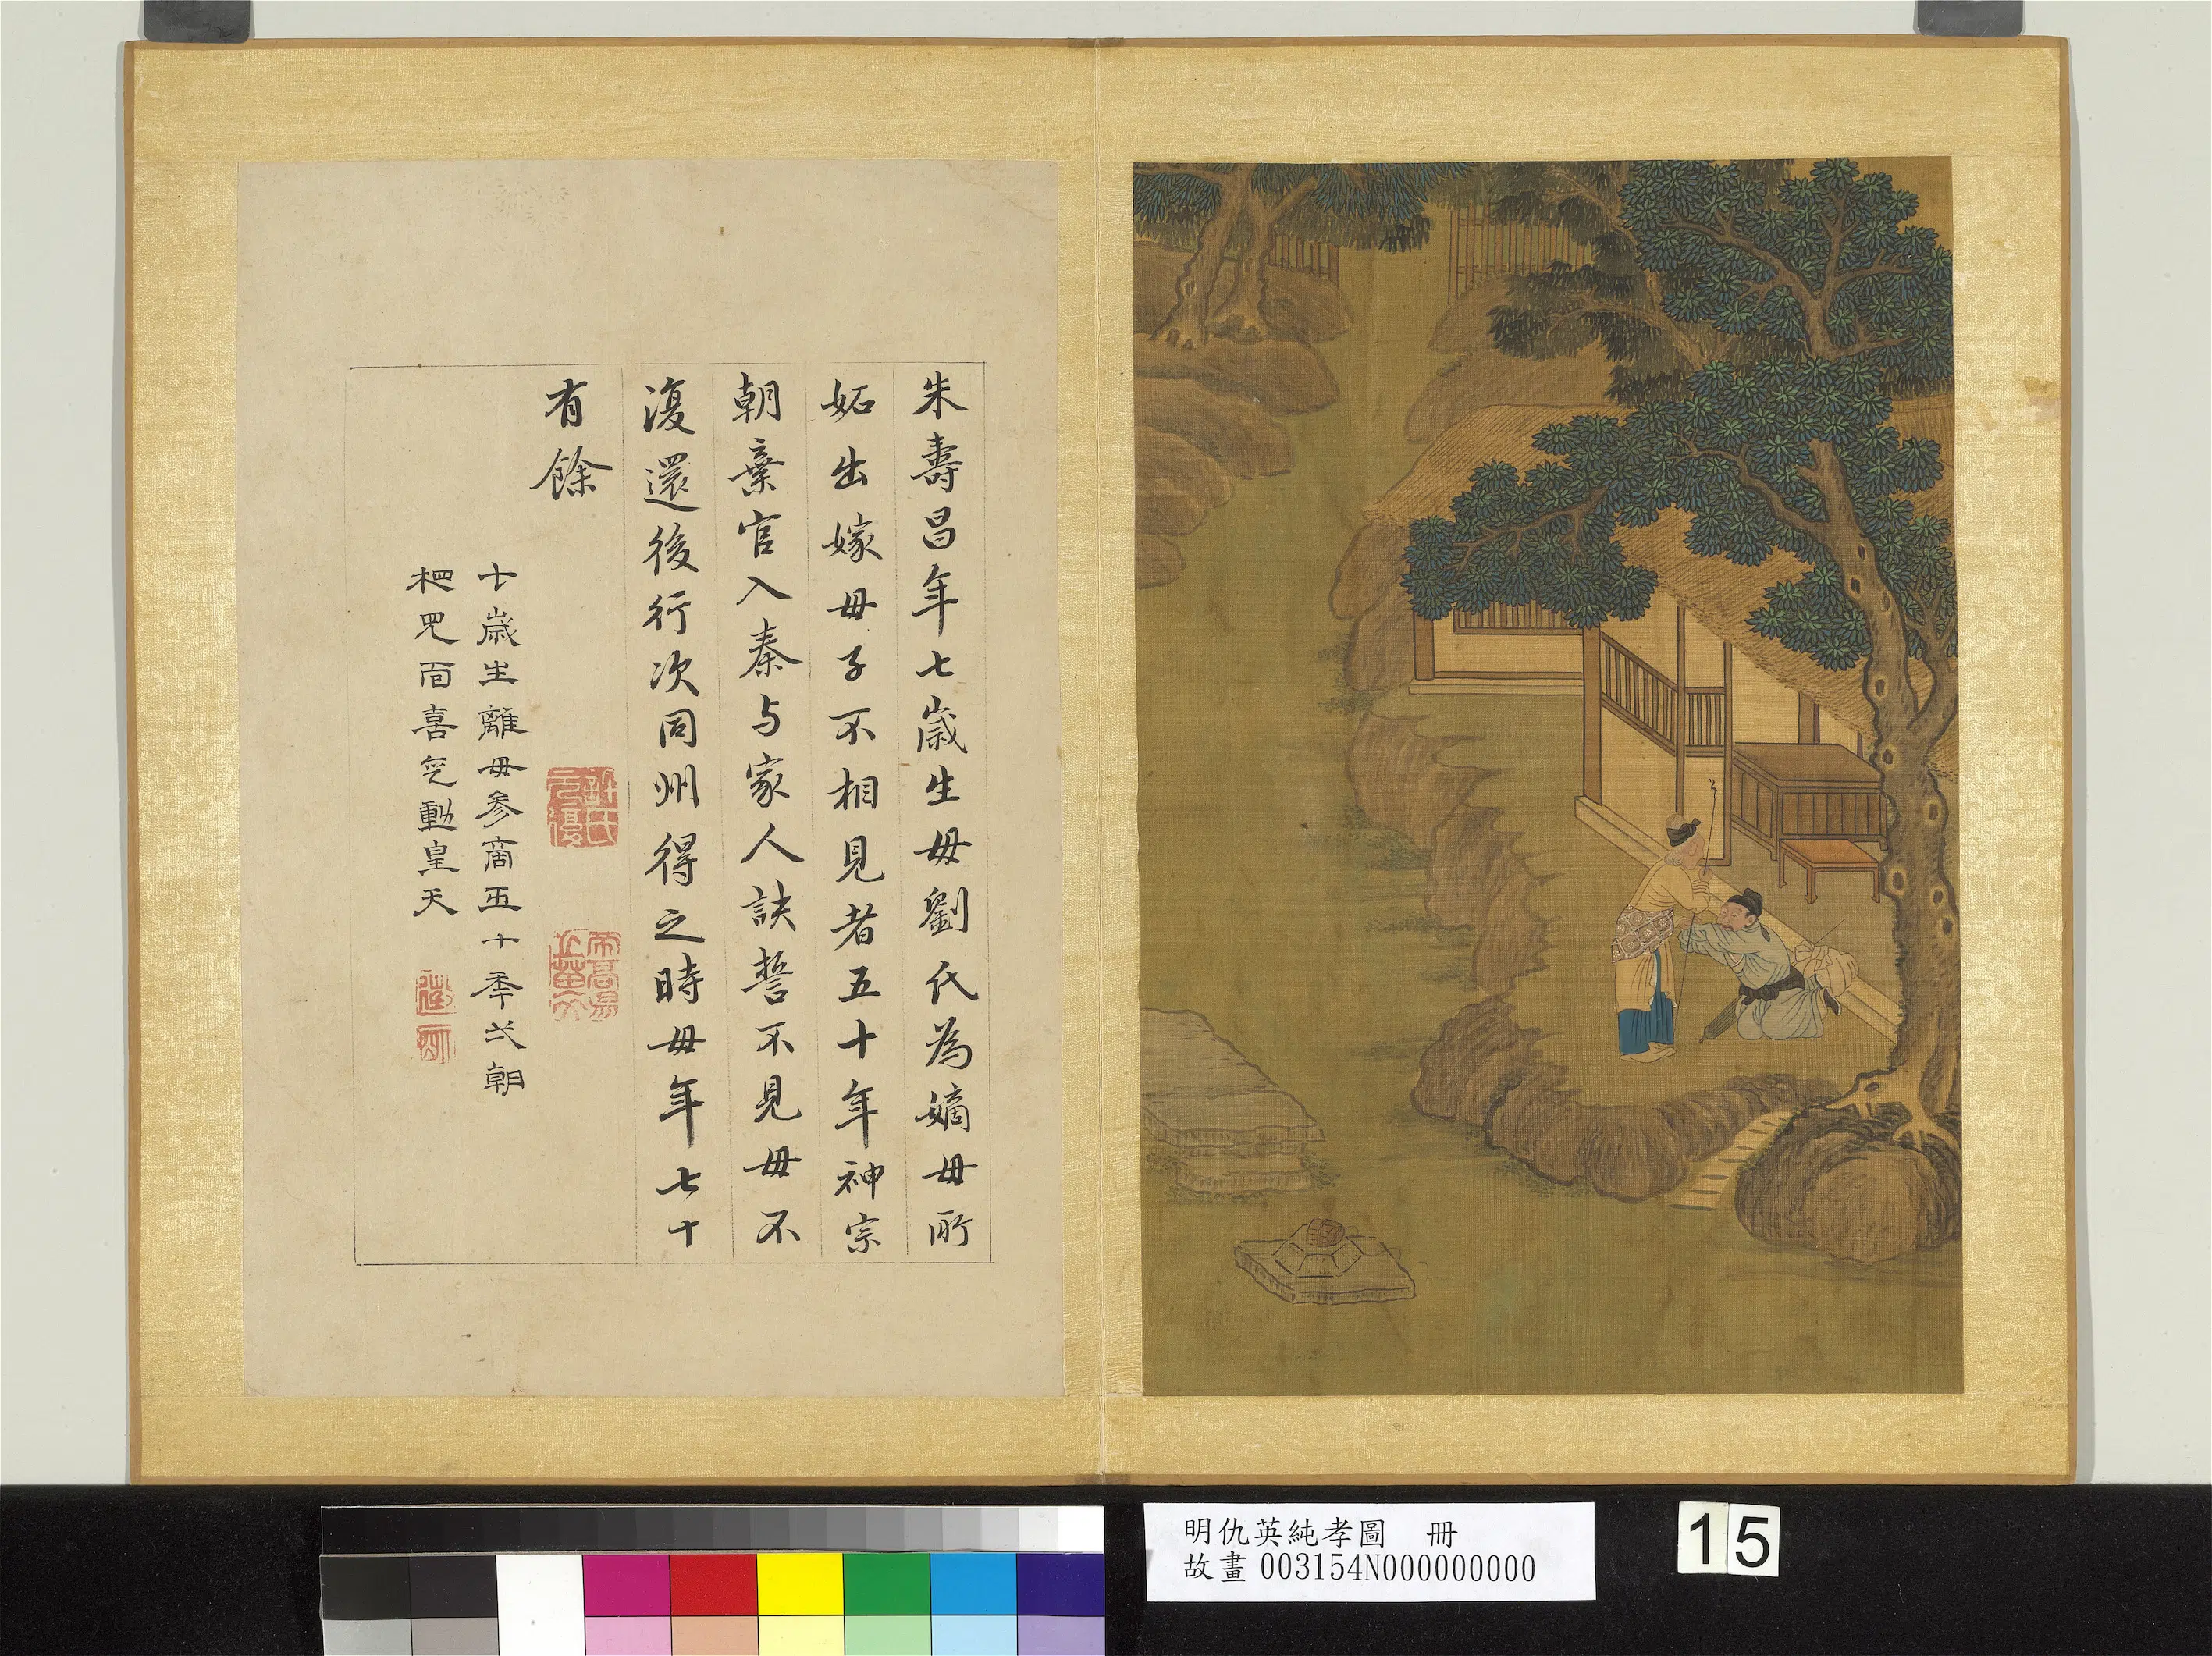 朱壽昌年七歲生母劉氏為嫡母所
妬出嫁母子不相見者五十年神宗
朝棄官入秦与家人訣誓不見母不
復還後行次同州得之時母年七十
有餘
七歲生離母參商五十季弌朝
相見面喜气動皇天
明仇英純孝圖 冊
故畫 003154N000000000
15